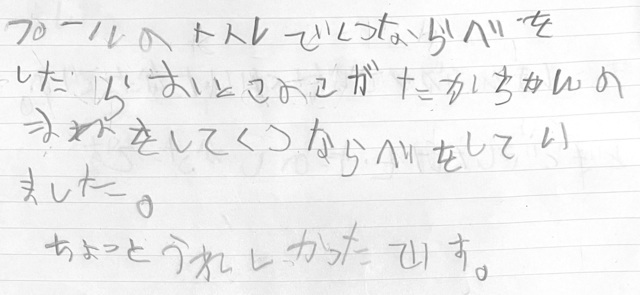 プールのトイレでくつならべを
したらおとこのこがたかちゃんの
まねをしてくつならべをしてい
ました。
ちょっとうれしかったです。